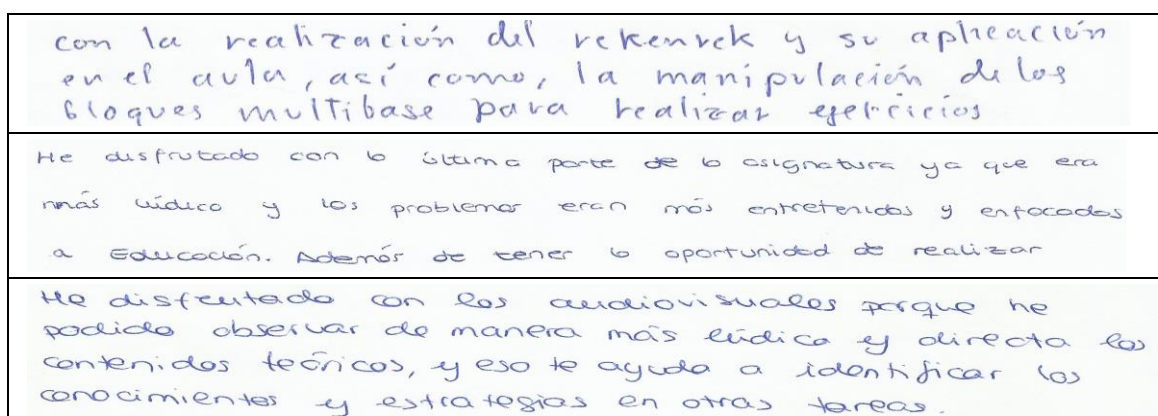 con la realización del rekenrek y su aplicación
en el aula, así como, la manipulación de los
bloques multibase para realizar ejercicios
He disfrutado con la última parte de la asignatura ya que era
más lúdico y los problemas eran más entretenidos y enfocados
a Educación. Además de tener la oportunidad de realizar
He disfrutado con los audiovisuales porque he
podido observar de manera más lúdica y directa los
contenidos teóricos, y eso te ayuda a identificar los
conocimientos y estrategias en otras tareas.